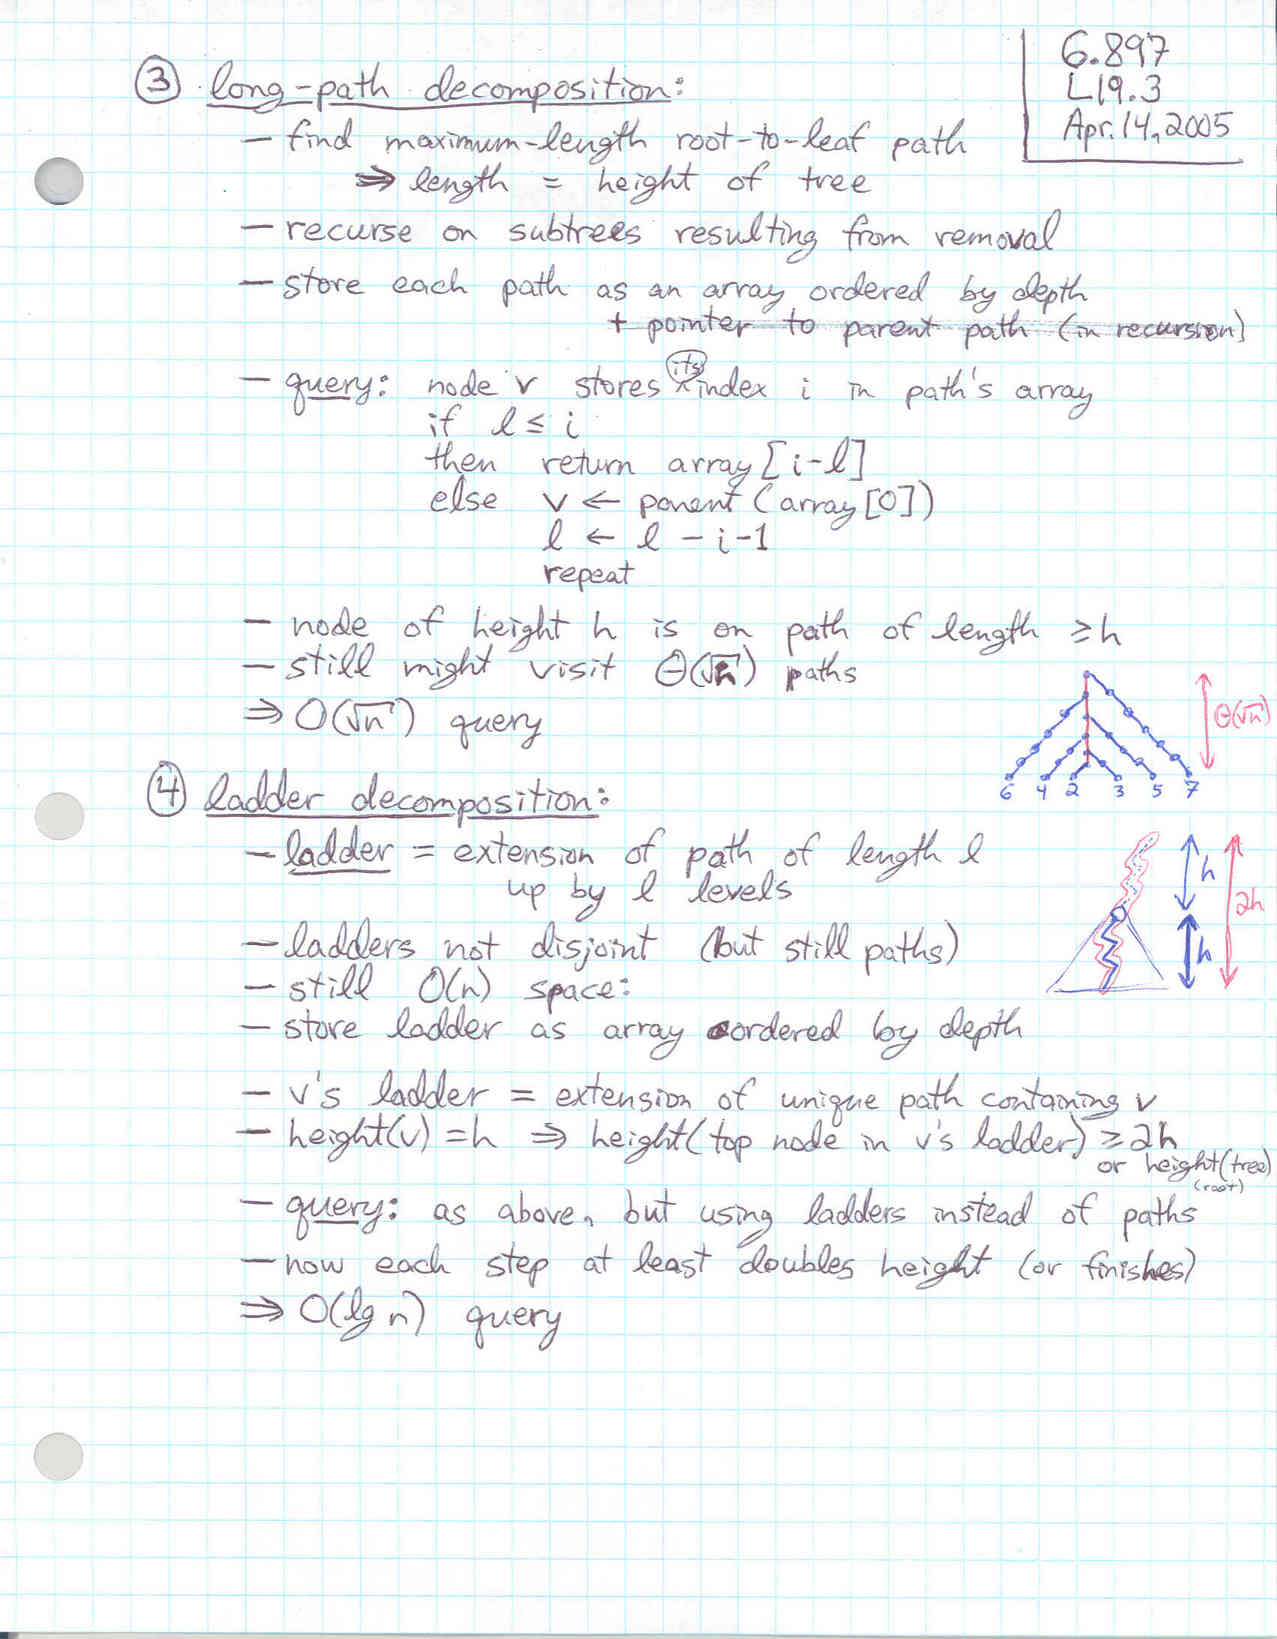 6.897
L19.3
Apr. 14, 2005
③ long-path decomposition:
– find maximum-length root-to-leaf path
⇒ length = height of tree
– recurse on subtrees resulting from removal
– store each path as an array ordered by depth
+ pointer to parent path (in recursion)
– query: node v stores its index i in path's array
if l ≤ i
then return array[i-l]
else v ← parent(array[0])
l ← l - i - 1
repeat
– node of height h is on path of length ≥ h
– still might visit Θ(√n) paths
⇒ O(√n) query
Θ(√n)
6 4 2 3 5 7
④ ladder decomposition:
– ladder = extension of path of length l
up by l levels
h
2h
h
– ladders not disjoint (but still paths)
– still O(n) space:
– store ladder as array ordered by depth
– v's ladder = extension of unique path containing v
– height(v) = h ⇒ height(top node in v's ladder) ≥ 2h
or height(tree)
(root)
– query: as above, but using ladders instead of paths
– now each step at least doubles height (or finishes)
⇒ O(lg n) query